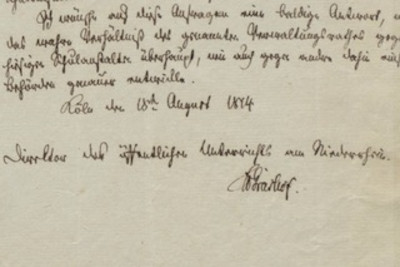 Ich wünsche auf diese Anfragen eine baldige Antwort,
das wahre Verhältniß des genannten Verwaltungsrathes geg
hiesigen Schulanstalten überhaupt, wie auch gegen andere dahin
Behörden genauer
Köln den 18ten August 1814
Direktor des öffentlichen Unterrichts am Niederrhein.
Grashof.